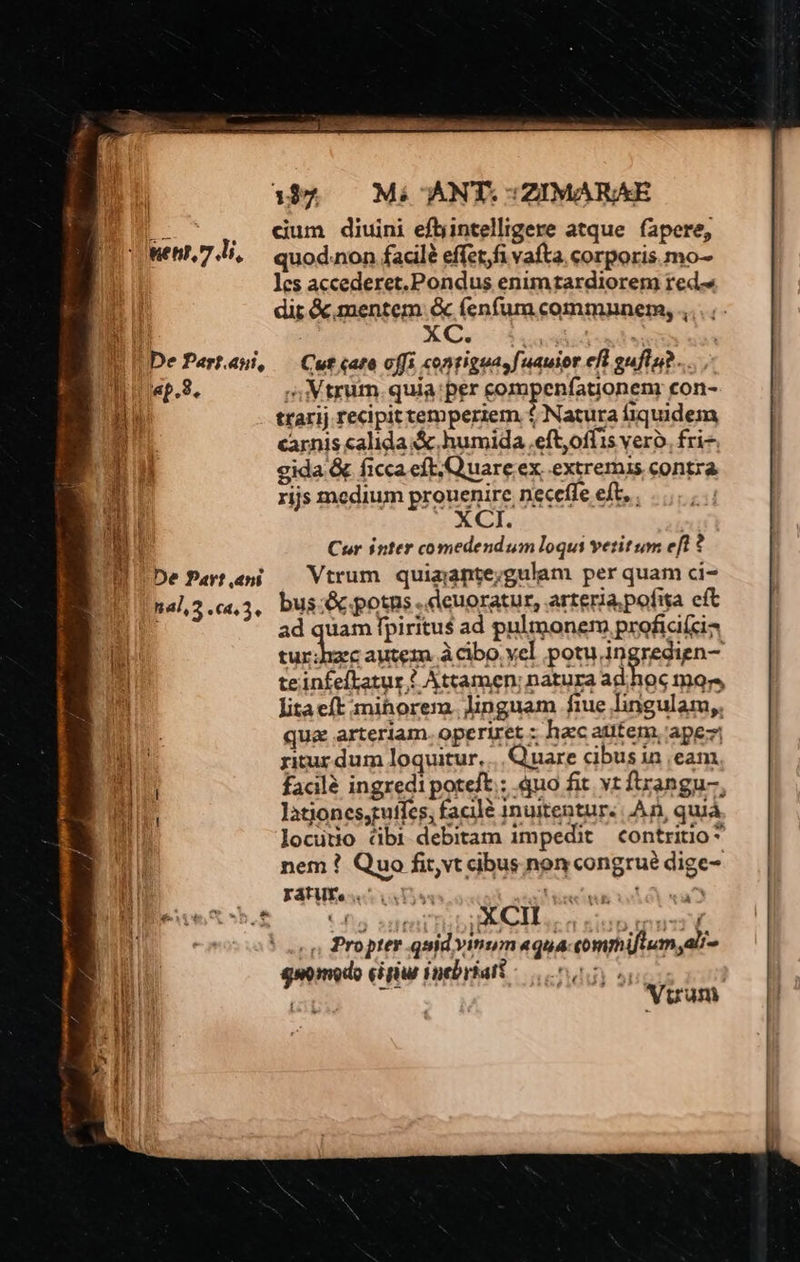 187 M. ANT. ZIMARAE
cium diuini est, intelligere atque sapere,
nent.7.li, quod non facilè esset, si vasta corporis mo-
les accederet. Pondus enim tardiorem red-
dit & mentem & sensum communem,
XC.
De Part.ani, Cur caro ossi contigua, suauior est gustu?
ap.8. Vtrum quia per compensationem con-
trarij recipit temperiem? Natura siquidem
carnis calida & humida est, ossis verò, fri-
gida & sicca est. Quare ex extremis contra
rijs medium prouenire necesse est.
XCI.
Cur inter comedendum loqui vetitum est?
De Part.ani Vtrum quia ante, gulam per quam ci-
nal,3.ca,3, bus & potus deuoratur, arteria posita est
ad quam spiritus ad pulmonem proficisci-
tur: hæc autem à cibo vel potu ingredien-
te infestatur? Attamen natura ad hoc mo-
lita est minorem linguam siue lingulam,
quæ arteriam operiret: hæc autem ape-
ritur dum loquitur. Quare cibus in eam
facilè ingredi potest: quo fit vt strangu-
lationes, tusses, facilè inuitentur. An, quia
locutio cibi debitam impedit contritio-
nem? Quo fit, vt cibus non congruè dige-
ratur.
XCII.
Propter quid vinum aqua commistum, ali-
quomodo citius inebriat?
Vtrum